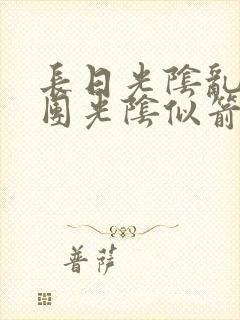 長日光陰亂
團光陰似箭
普薩